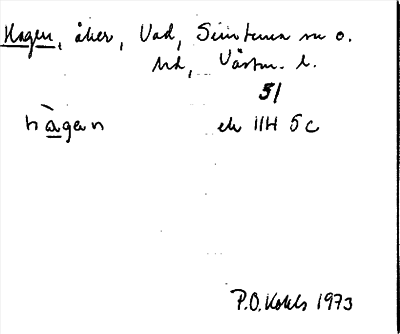 Hagen, åker, Vad, Semtuna sn o.
hd, Västm. l.
51
hàgan ek 11H 5c
P.O. Kohls 1973